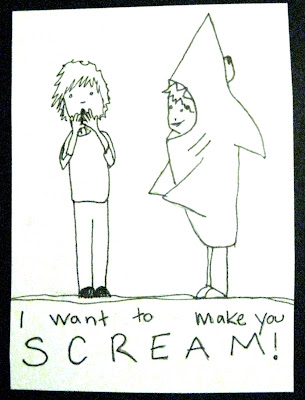 I want to make you
SCREAM!